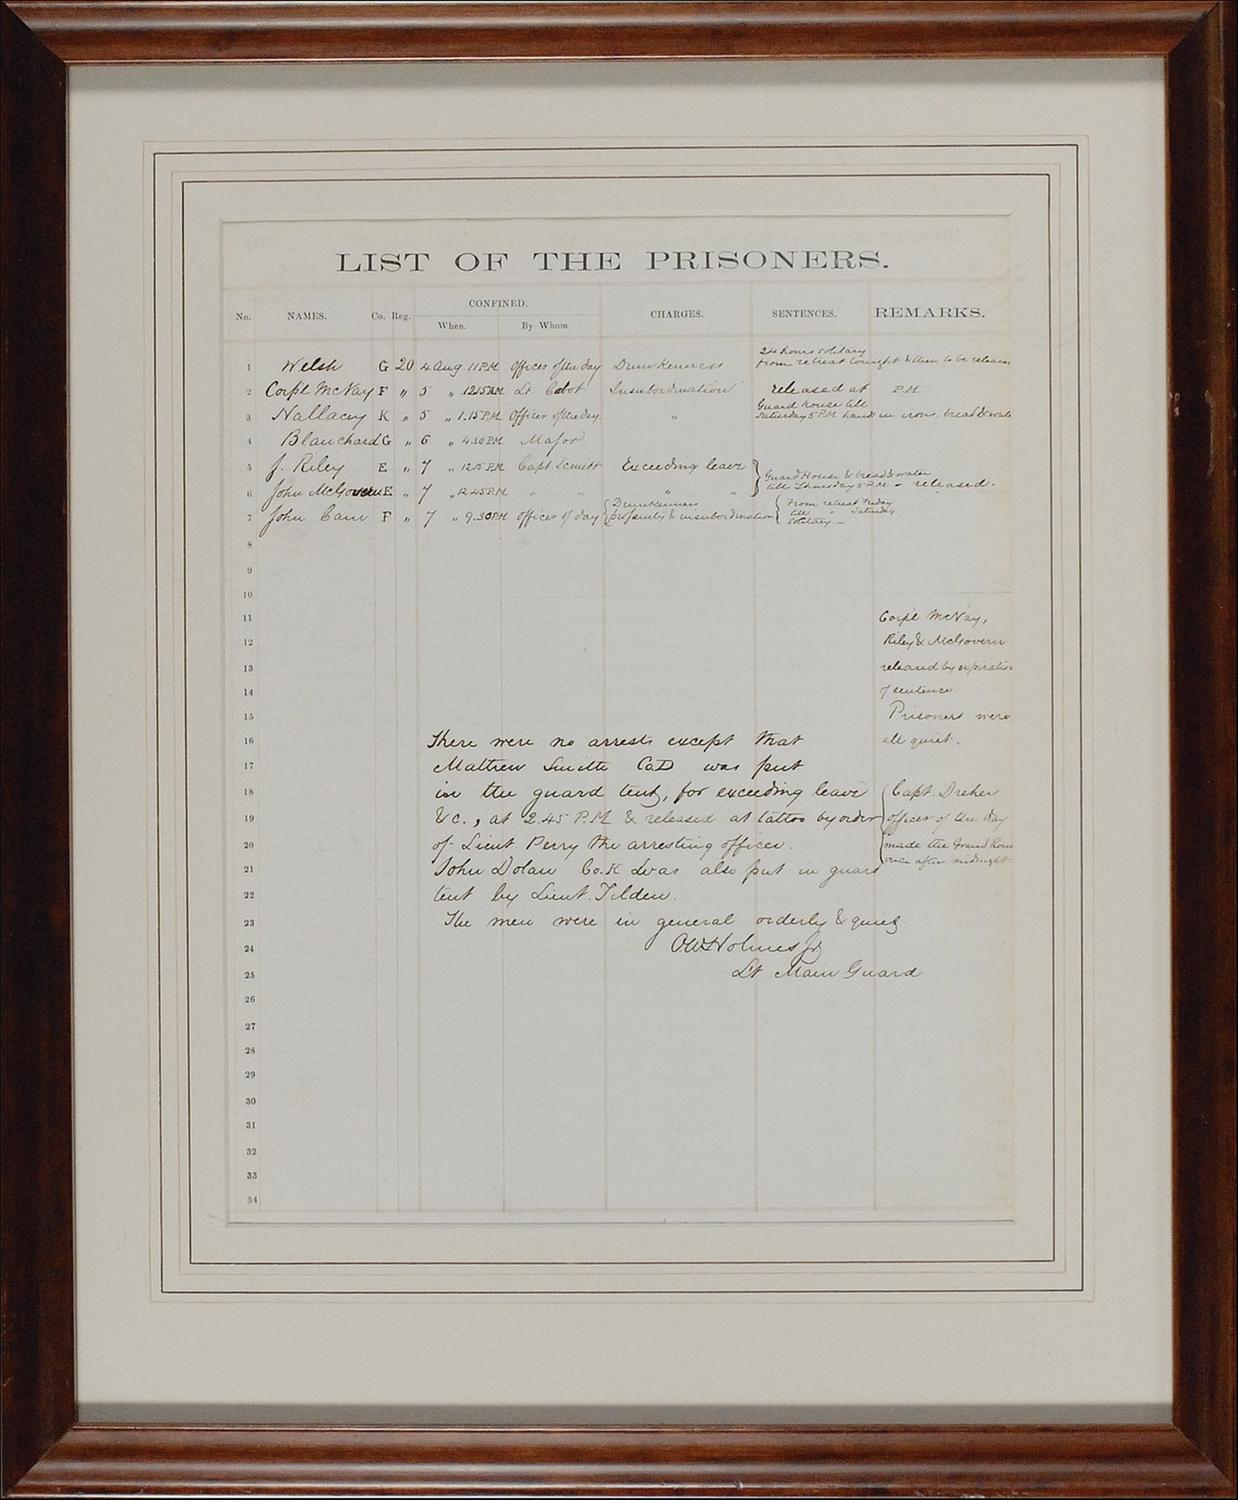 LIST OF THE PRISONERS.
No. NAMES. Co. Reg. CONFINED. CHARGES. SENTENCES. REMARKS.
When. By Whom.
24 hours solitary
1 Welsh G 20 4 Aug. 11 P.M. Officer of the day Drunkenness from retreat tonight & then to be releas
2 Corpl McVay F " 5 " 12.15 AM Lt Cabot Insubordination released at P.M.
Guard house till
3 Nallacey K " 5 " 1.15 P.M. Officer of the day. " Saturday 5 P.M. hands in irons, bread & wate
4 Blanchard G " 6 " 4.30 P.M. Major
5 J. Riley E " 7 " 12.15 P.M. Capt. Exceeding leave Guard House & bread & water
6 John McGovern E " 7 " 12.45 P.M. " " " " till Thursday 5 P.M. - released.
Drunkenness From retreat Friday
7 John Cain F " 7 " 9.30 P.M. Officer of day profanity & insubordination till " Saturday
solitary -
8
9
10
11 Corpl McVay,
12 Riley & McGovern
13 released by expiration
14 of sentence.
15 Prisoners were
16 There were no arrests except that all quiet.
17 Mathew Co D was put
18 in the guard tent, for exceeding leave Capt. Dreher
19 &c., at 2.45 P.M. & released at tattoo by order officer of the day
20 of Lieut Perry the arresting officer. made the Grand Roun
21 John Dolan Co. K was also put in guard after midnight.
22 tent by Lieut. Tilden.
23 The men were in general orderly & quiet.
24 OW Holmes Jr
25 Lt Main Guard
26
27
28
29
30
31
32
33
34